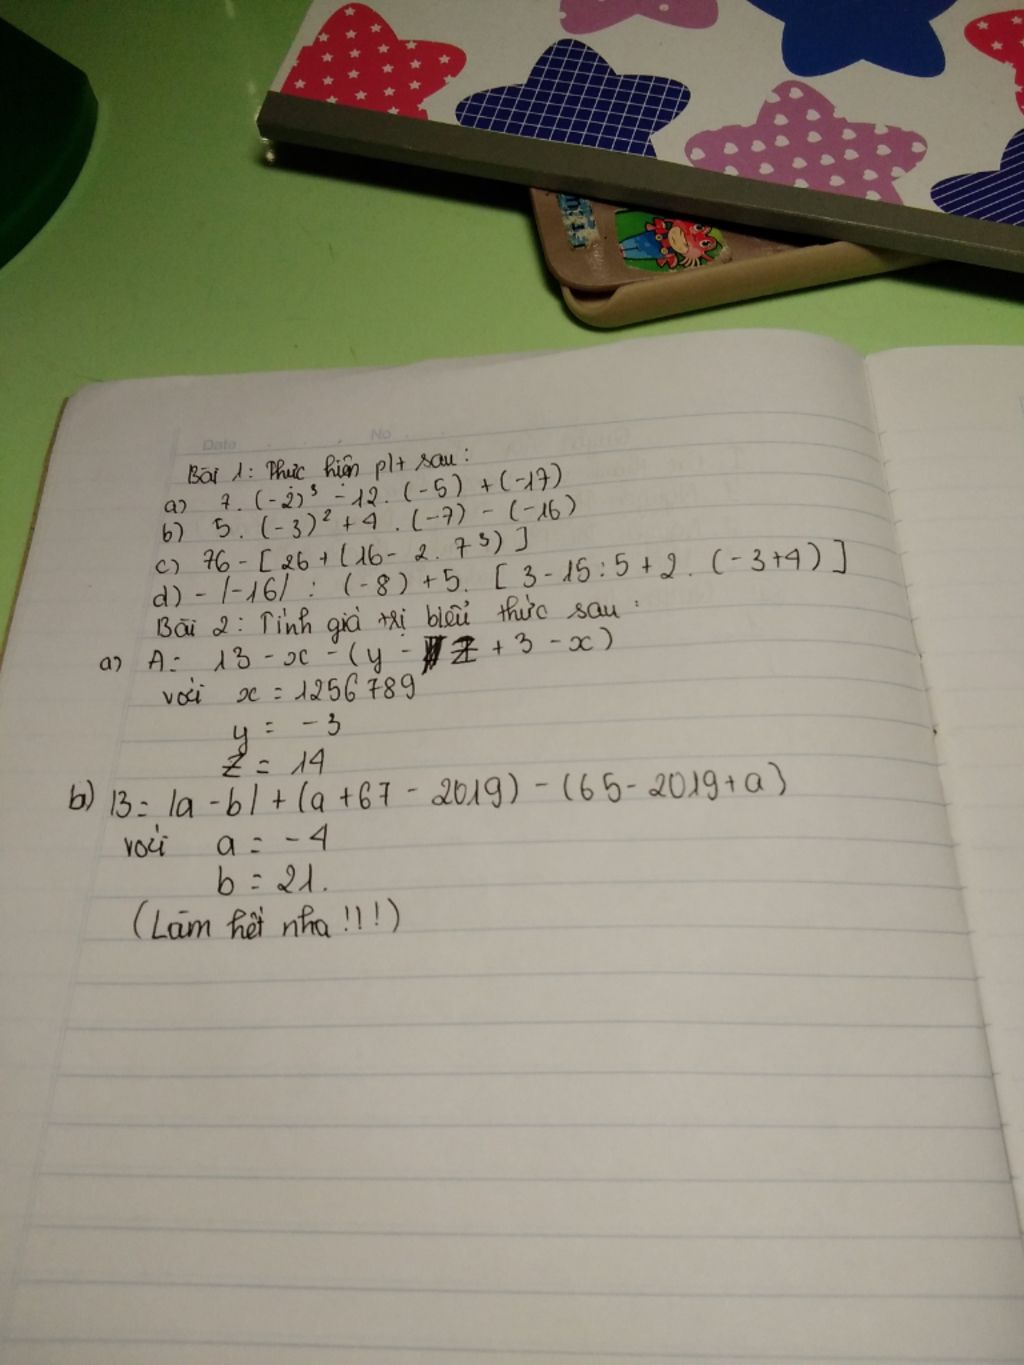 Date No
Bài 1: Thực hiện pht sau:
a) 7. (-2)³ - 12. (-5) + (-17)
b) 5. (-3)² + 4. (-7) - (-16)
c) 76 - [26 + (16 - 2. 7³)]
d) - |-16| : (-8) + 5. [3 - 15 : 5 + 2. (-3+4)]
Bài 2: Tính giá trị biểu thức sau:
a) A = 13 - x - (y - z + 3 - x)
với x = 1256789
y = -3
z = 14
b) B = |a - b| + (a + 67 - 2019) - (65 - 2019 + a)
với a = -4
b = 21.
(Làm hết nha!!!)